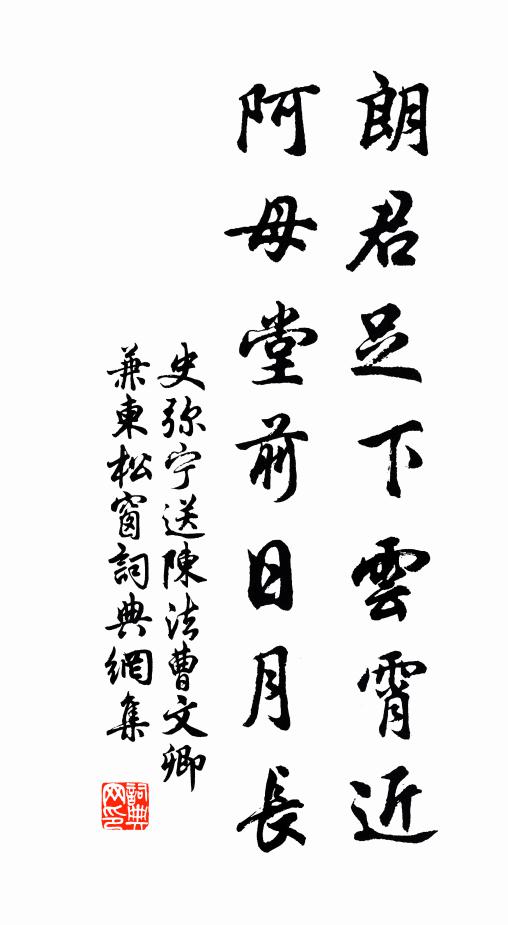 朗君足下雲霄近
阿母堂前日月長
史弥宁送陳法曹文卿
兼東松窗詞典網集
詞典网印